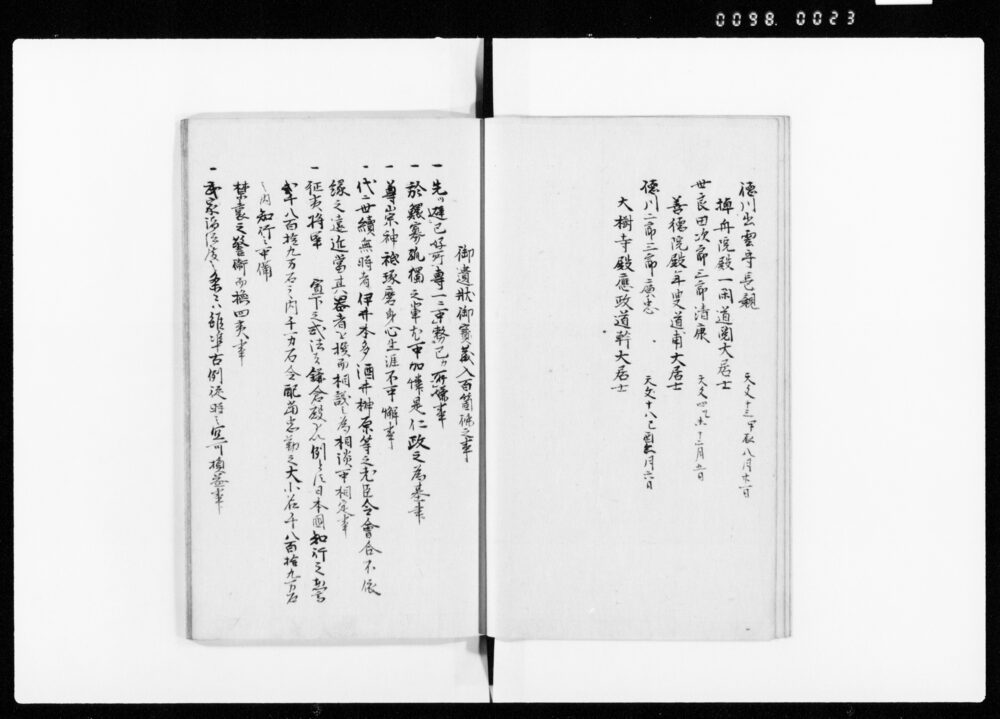 0098. 0023
徳川出雲守長親
掉舟院殿一閑道閲大居士 天文十三甲辰八月廿一日
世良田次郎三郎清康
善徳院殿年叟道甫大居士 天文四乙未十二月五日
徳川二郎三郎広忠
大樹寺殿應政道幹大居士 天文十八己酉三月六日
御遺状御寳蔵入百箇條之事
一 先可避己好所専一二可務己可所嫌事
一 於鰥寡孤獨之輩尤可加憐是仁政之為基事
一 尊崇神祇琢磨身心生涯不可懈事
一 代二世續無時者伊井本多酒井榊原等之老臣令會合不依
縁之遠近當其器者を撰而相談之為相談可相定事
一 征夷将軍 宣下之式法は鎌倉殿之例を以日本國知行之惣高
貳千八百拾九万石之内千八万石令配当忠勤之大小名千八百拾九万石
之内知行之可備
禁裏之警衛而撫四夷事
一 武家諸法度之条々雖准古例従時之宜可損益事